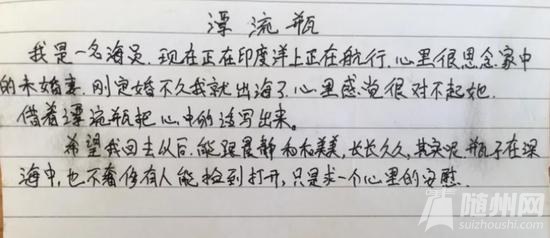 漂流瓶
我是一名海员,现在正在印度洋上正在航行,心里很思念家中
的未婚妻,刚定婚不久我就出海了,心里感觉很对不起她,
借着漂流瓶把心中的话写出来。
希望我回去以后,能跟晨静和和美美,长长久久,其实呢,瓶子在深
海中,也不奢侈有人能捡到打开,只是求一个心里的安慰.
随州网
suizhoushi.com